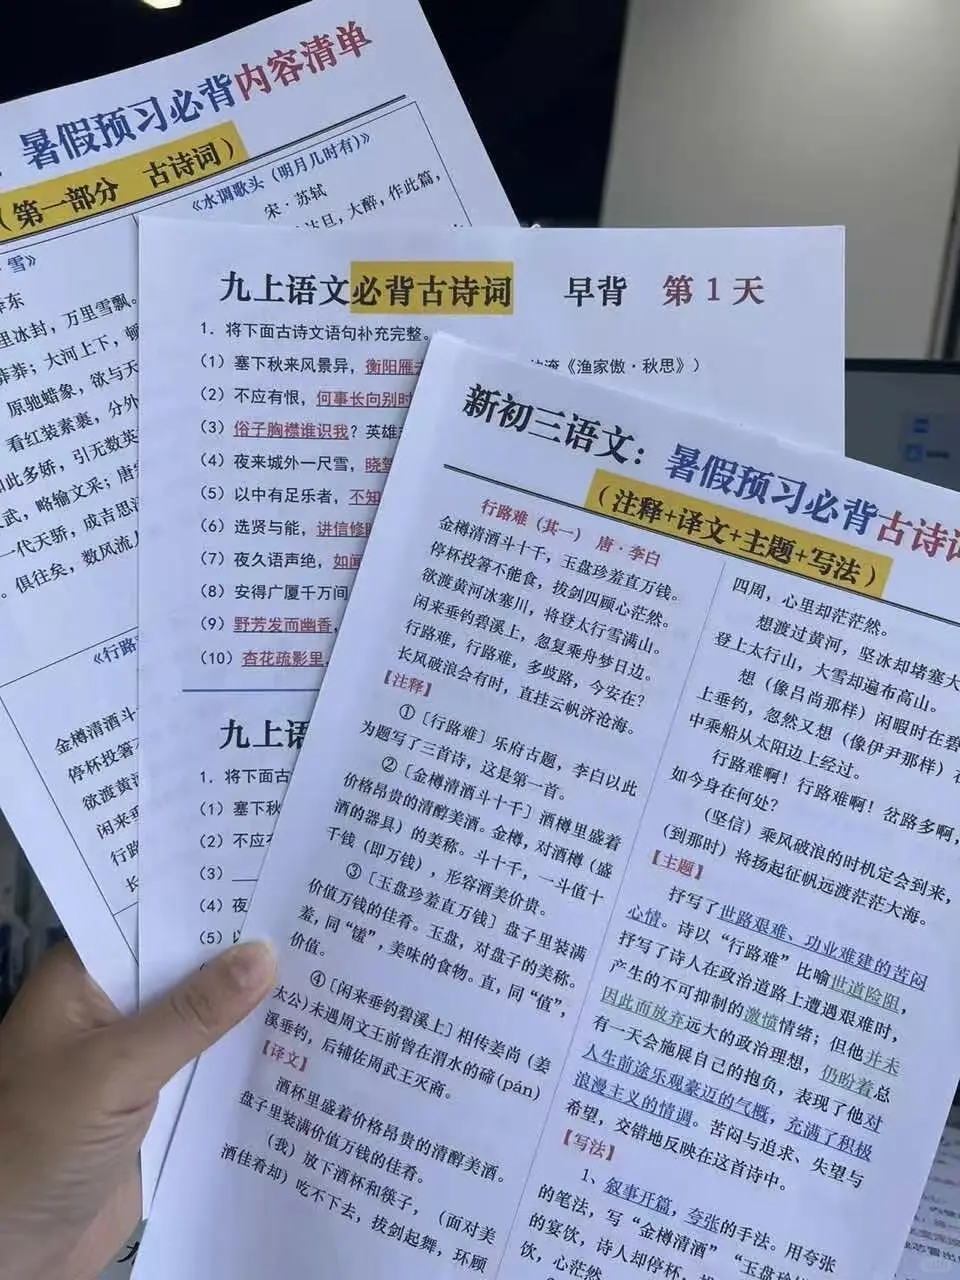 暑假预习必背内容清单
（第一部分 古诗词）
《水调歌头（明月几时有）》
宋·苏轼
达旦，大醉，作此篇，
雪》
里冰封，万里雪飘。
莽莽；大河上下，顿
原驰蜡象，欲与天
看红装素裹，分外
如此多娇，引无数英
武，略输文采；唐宗
一代天骄，成吉思汗
俱往矣，数风流人
《行路
金樽清酒斗十
停杯投箸不
欲渡黄河
闲来垂
行路
长
九上语文必背古诗词 早背 第1天
1. 将下面古诗文语句补充完整。
（1）塞下秋来风景异，衡阳雁去
《渔家傲·秋思》）
（2）不应有恨，何事长向别时
（3）俗子胸襟谁识我？英雄
（4）夜来城外一尺雪，晓驾
（5）以中有足乐者，不知
（6）选贤与能，讲信修睦
（7）夜久语声绝，如闻
（8）安得广厦千万间
（9）野芳发而幽香，
（10）杏花疏影里，
九上语
1. 将下面古
（1）塞下秋
（2）不应
（3）
（4）夜
（5）以
新初三语文：暑假预习必背古诗词
（注释+译文+主题+写法）
行路难（其一） 唐·李白
金樽清酒斗十千，玉盘珍羞直万钱。
停杯投箸不能食，拔剑四顾心茫然。
欲渡黄河冰塞川，将登太行雪满山。
闲来垂钓碧溪上，忽复乘舟梦日边。
行路难，行路难，多歧路，今安在？
长风破浪会有时，直挂云帆济沧海。
【注释】
①［行路难］乐府古题，李白以此
为题写了三首诗，这是第一首。
②［金樽清酒斗十千］酒樽里盛着
价格昂贵的清醇美酒。金樽，对酒樽（盛
酒的器具）的美称。斗十千，一斗值十
千钱（即万钱），形容酒美价贵。
③［玉盘珍羞直万钱］盘子里装满
价值万钱的佳肴。玉盘，对盘子的美称。
羞，同“馐”，美味的食物。直，同“值”，
价值。
④［闲来垂钓碧溪上］相传姜尚（姜
太公）未遇周文王前曾在渭水的磻(pán)
溪垂钓，后辅佐周武王灭商。
【译文】
酒杯里盛着价格昂贵的清醇美酒。
盘子里装满价值万钱的佳肴。
（我）放下酒杯和筷子，（面对美
酒佳肴却）吃不下去，拔剑起舞，环顾
四周，心里却茫茫然。
想渡过黄河，坚冰却堵塞大
登上太行山，大雪却遍布高山。
想（像吕尚那样）闲暇时在碧
上垂钓，忽然又想（像伊尹那样）在
中乘船从太阳边上经过。
行路难啊！行路难啊！岔路多啊，
如今身在何处？
（坚信）乘风破浪的时机定会到来，
（到那时）将扬起征帆远渡茫茫大海。
【主题】
抒写了世路艰难、功业难建的苦闷
心情。诗以“行路难”比喻世道险阻，
抒写了诗人在政治道路上遭遇艰难时，
产生的不可抑制的激愤情绪；但他并未
因此而放弃远大的政治理想，仍盼着总
有一天会施展自己的抱负，表现了他对
人生前途乐观豪迈的气概，充满了积极
浪漫主义的情调。苦闷与追求、失望与
希望，交错地反映在这首诗中。
【写法】
1、叙事开篇，夸张的手法。用夸张
的笔法，写“金樽清酒”“玉盘珍
的宴饮，诗人却停杯、投
饮，心茫然